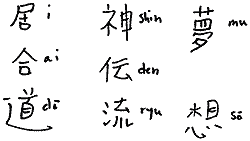 夢 mu 想 sō
神 shin 伝 den 流 ryu
居 i 合 ai 道 dō